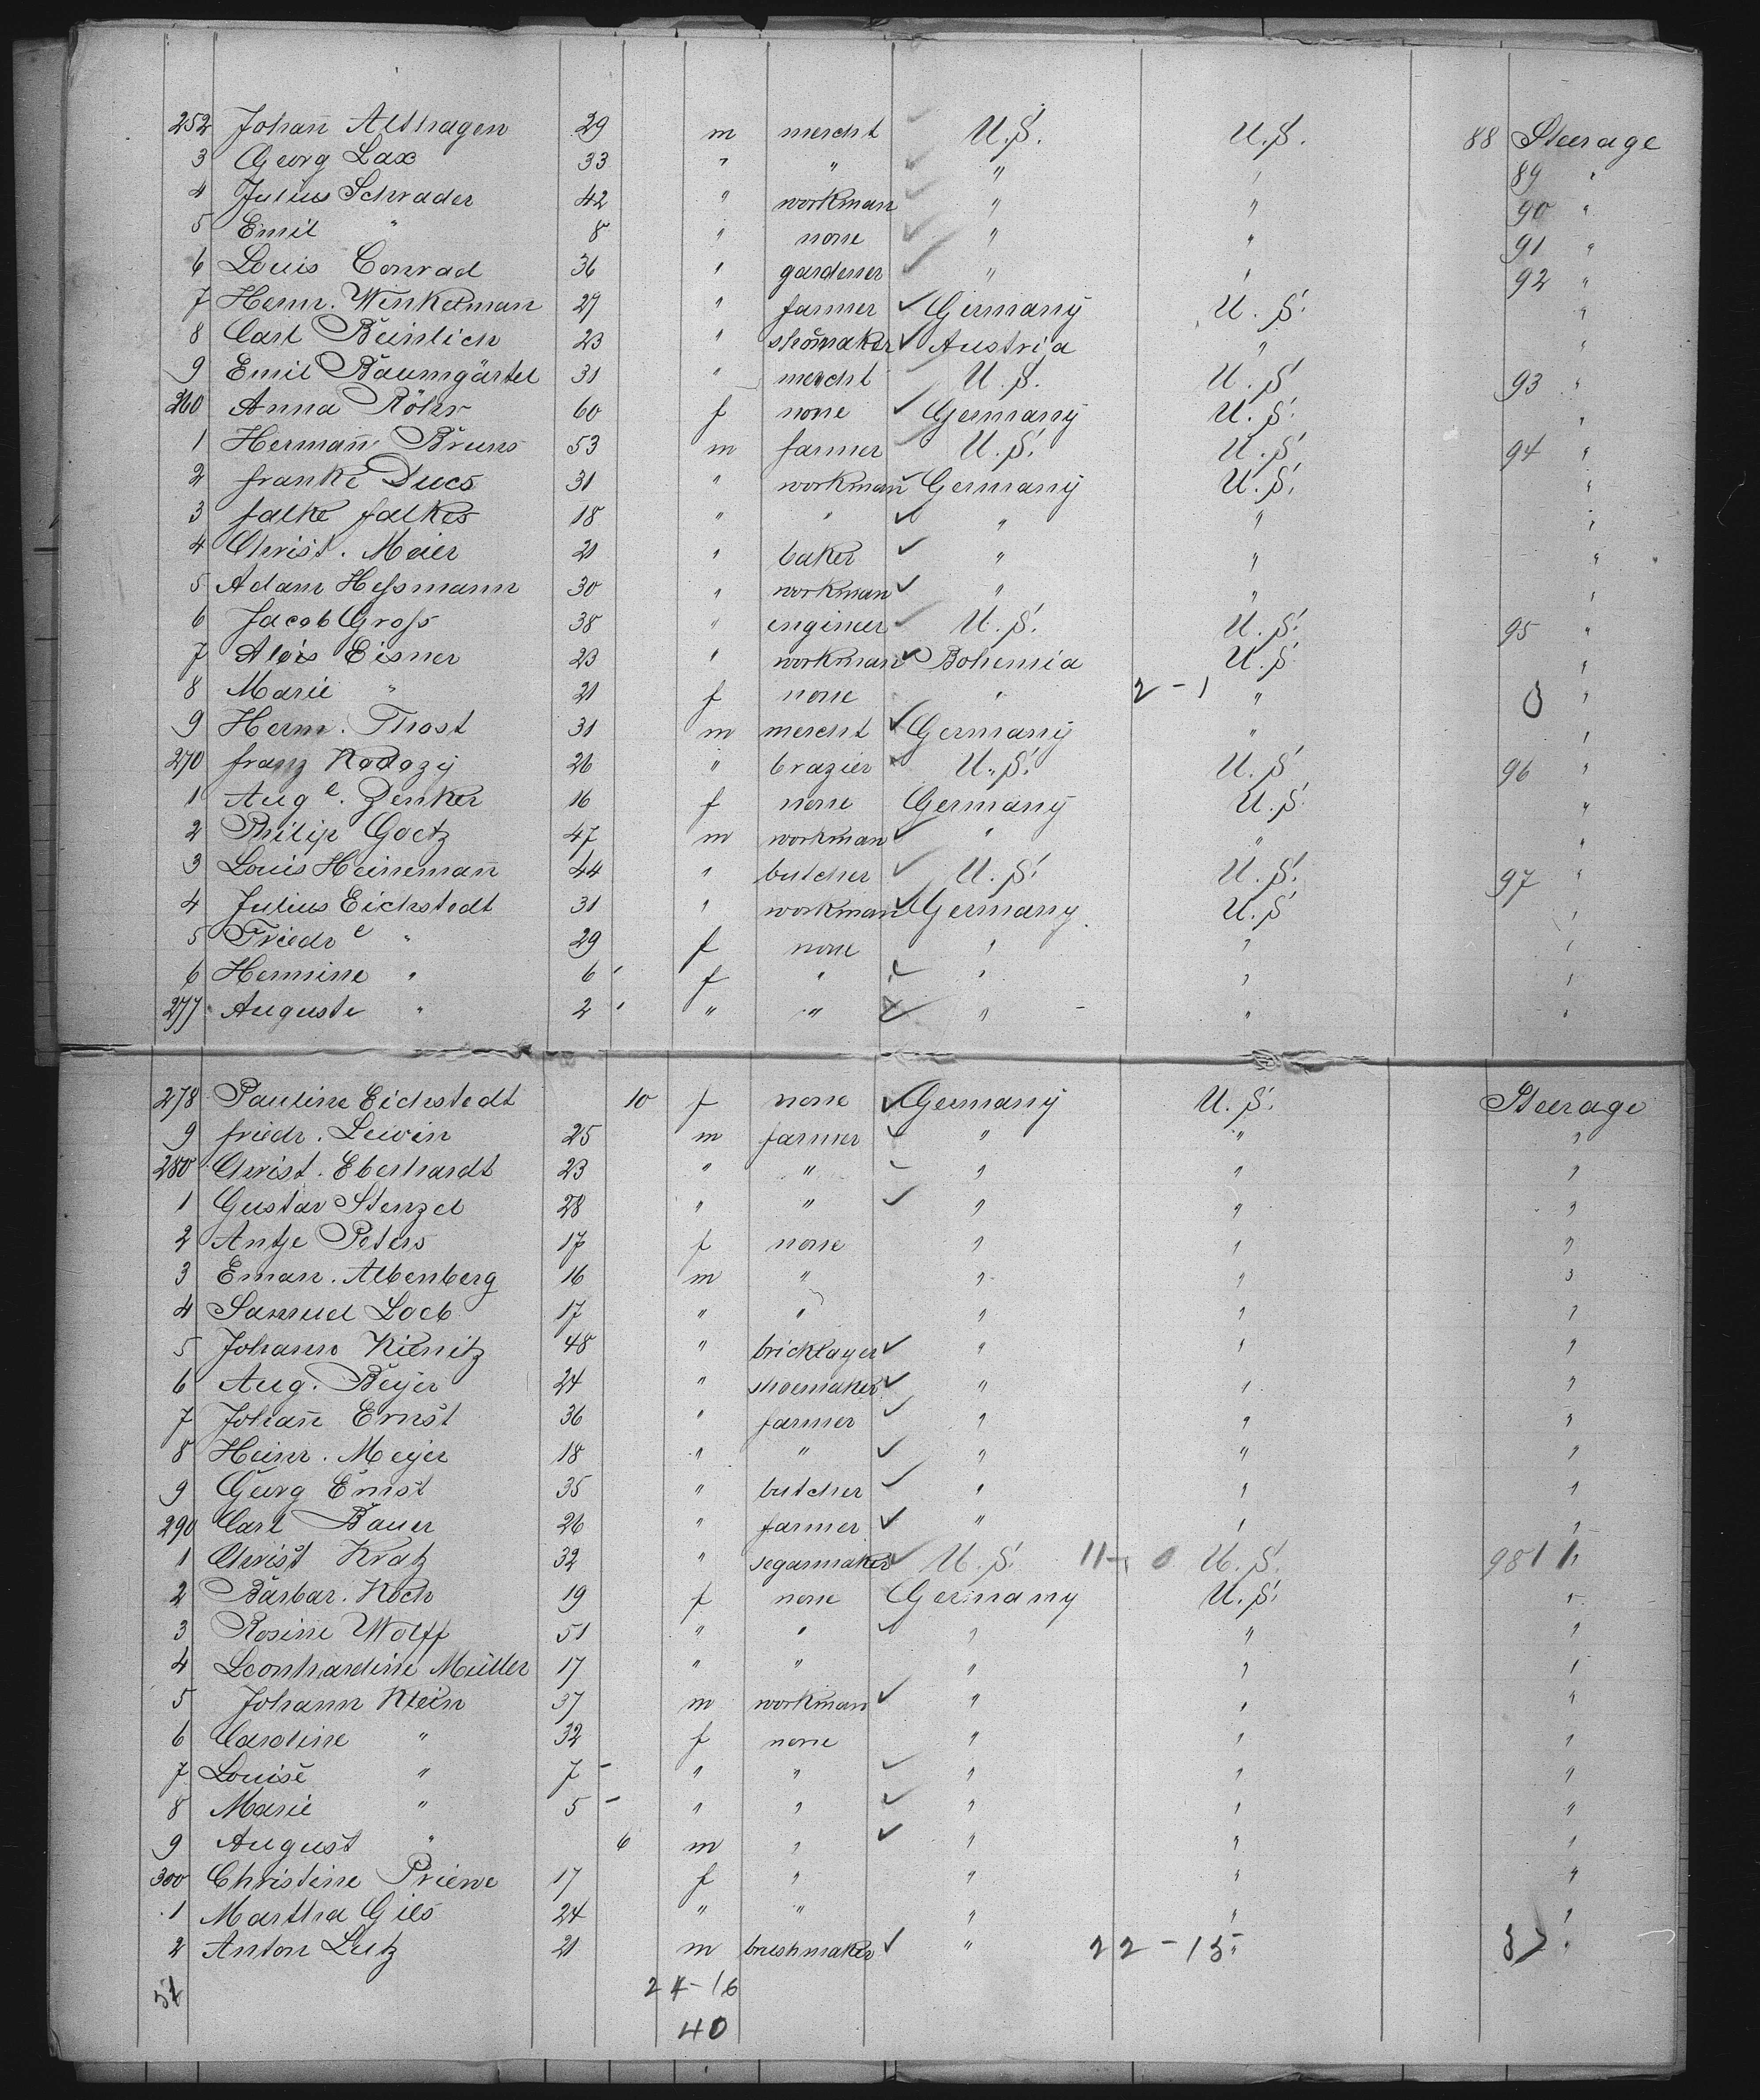 252 Johañ Althagen 29 m mercht U.S. U.S. 88 Steerage
3 Georg Lax 33 " " " " 89 "
4 Julius Schrader 42 " workman " " 90 "
5 Emil " 8 " none " " 91 "
6 Louis Conrad 36 " gardener " " 92 "
7 Herm. Winkelman 27 " farmer Germany U.S. "
8 Carl Beinlich 23 " shomaker Austria " "
9 Emil Baumgärtel 31 " mercht U.S. U.S. 93 "
260 Anna Röhr 60 f none Germany U.S. "
1 Hermañ Bruns 53 m farmer U.S. U.S. 94 "
2 franke Ducs 31 " workman Germany U.S. "
3 falke falkes 18 " " " " "
4 Christ. Meier 21 " baker " " "
5 Adam Heßmann 30 " workman " " "
6 Jacob Groß 38 " engineer U.S. U.S. 95 "
7 Alois Eisner 23 " workman Bohemia U.S. "
8 Marie " 21 f none " 2 - 1 " "
9 Herm. Thost 31 m mercht Germany " "
270 franz 26 " brazier U.S. U.S. 96 "
1 Aug e. Zenker 16 f none Germany U.S. "
2 Philip Goetz 47 m workman " " "
3 Louis Heinemañ 44 " butcher U.S. U.S. 97 "
4 Julius Eichstedt 31 " workman Germany U.S. "
5 Friedr e " 29 f none " " "
6 Hermine " 6 f " " " "
277 Auguste " 2 " " " " "
278 Pauline Eichstedt 10 f none Germany U.S. Steerage
9 friedr. Lewin 25 m farmer " " "
280 Christ. Eberhardt 23 " " " " "
1 Gustav Stenzel 28 " " " " "
2 Antje Peters 17 f none " " "
3 Eman. Albenberg 16 m " " " "
4 Samuel Loeb 17 " " " " "
5 Johann Kienitz 48 " bricklayer " " "
6 Aug. Beyer 24 " shoemaker " " "
7 Johañ Ernst 36 " farmer " " "
8 Heinr. Meyer 18 " " " " "
9 Georg Ernst 35 " butcher " " "
290 Carl Bauer 26 " farmer " " "
1 Christ Kratz 32 " segarmaker U.S. 11 - 0 U.S. 98 11 "
2 Barbar. Koch 19 f none Germany U.S. "
3 Rosine Wolff 51 " " " " "
4 Leonhardine Müller 17 " " " " "
5 Johann Klein 37 m workman " " "
6 Caroline " 32 f none " " "
7 Louise " 7 " " " " "
8 Marie " 5 " " " " "
9 August " 6 m " " " "
300 Christine Priewe 17 f " " " "
1 Martha Gies 24 " " " " "
2 Anton Lutz 21 m brushmaker " 22 - 15 " 37 "
51 24 - 16
40